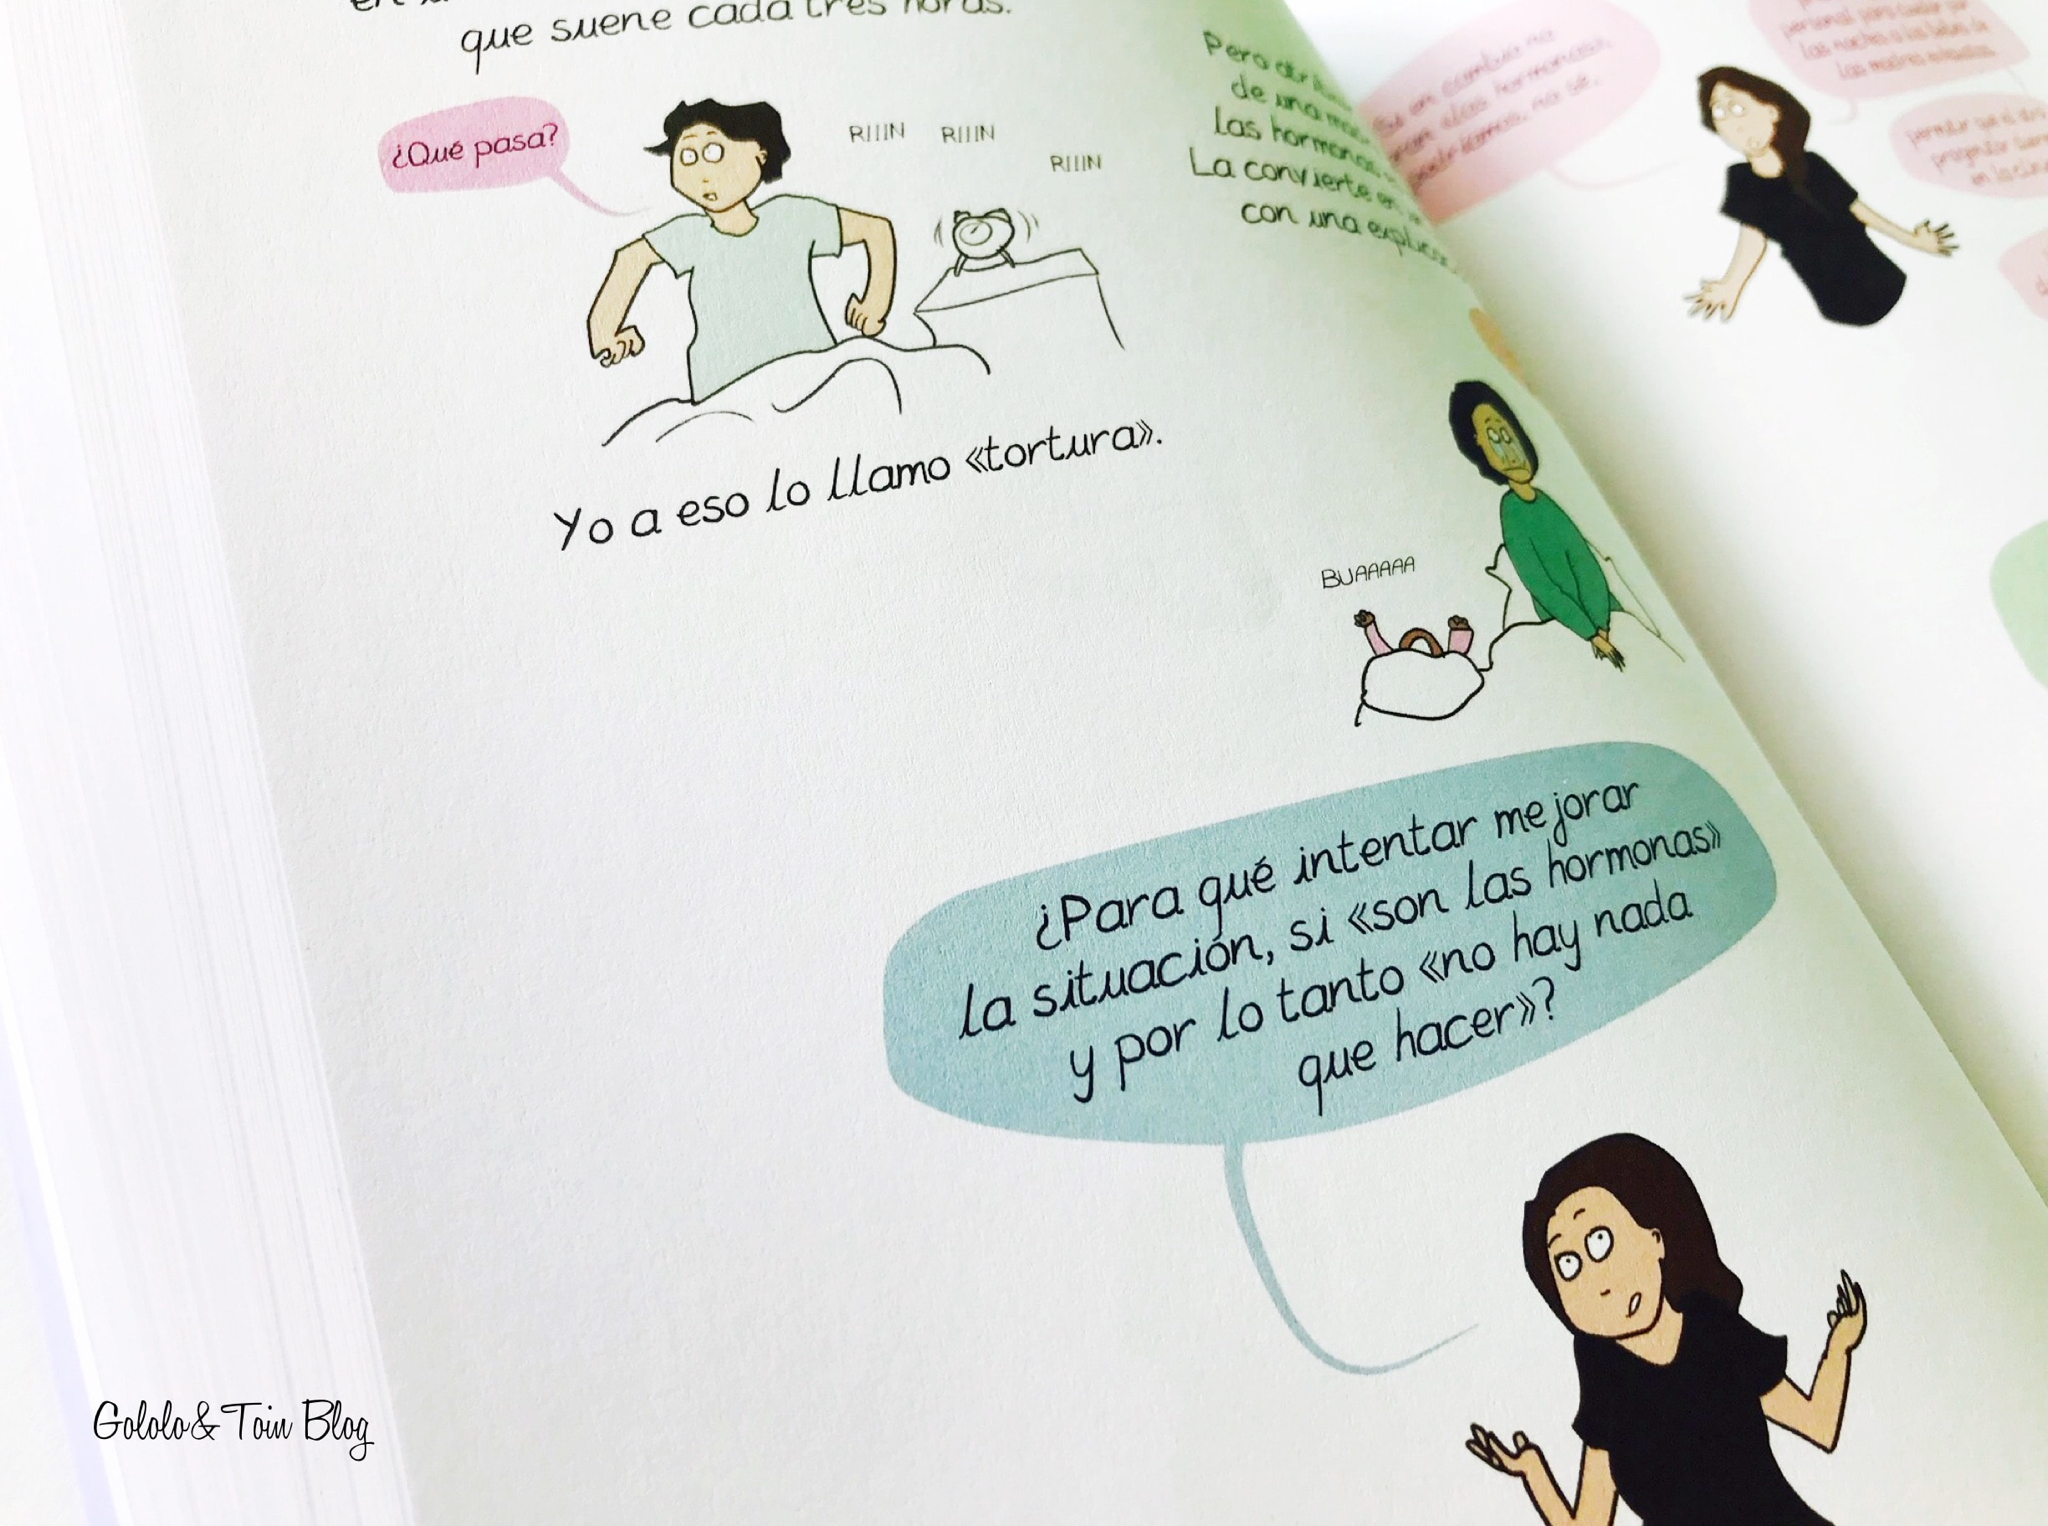 que suene cada tres horas.
¿Qué pasa?
RIIIN RIIIN
RIIIN
Yo a eso lo llamo «tortura».
Pero
de una
las hormonas
La convierte en
con una
BUAAAAA
¿Para qué intentar mejorar
la situación, si «son las hormonas»
y por lo tanto «no hay nada
que hacer»?
Si en cambio no
hormonas,
no sé.
personal para cuidar por
las noches a los bebés de
las madres
permitir que el otro
progenitor
en la
Gololo & Toin Blog